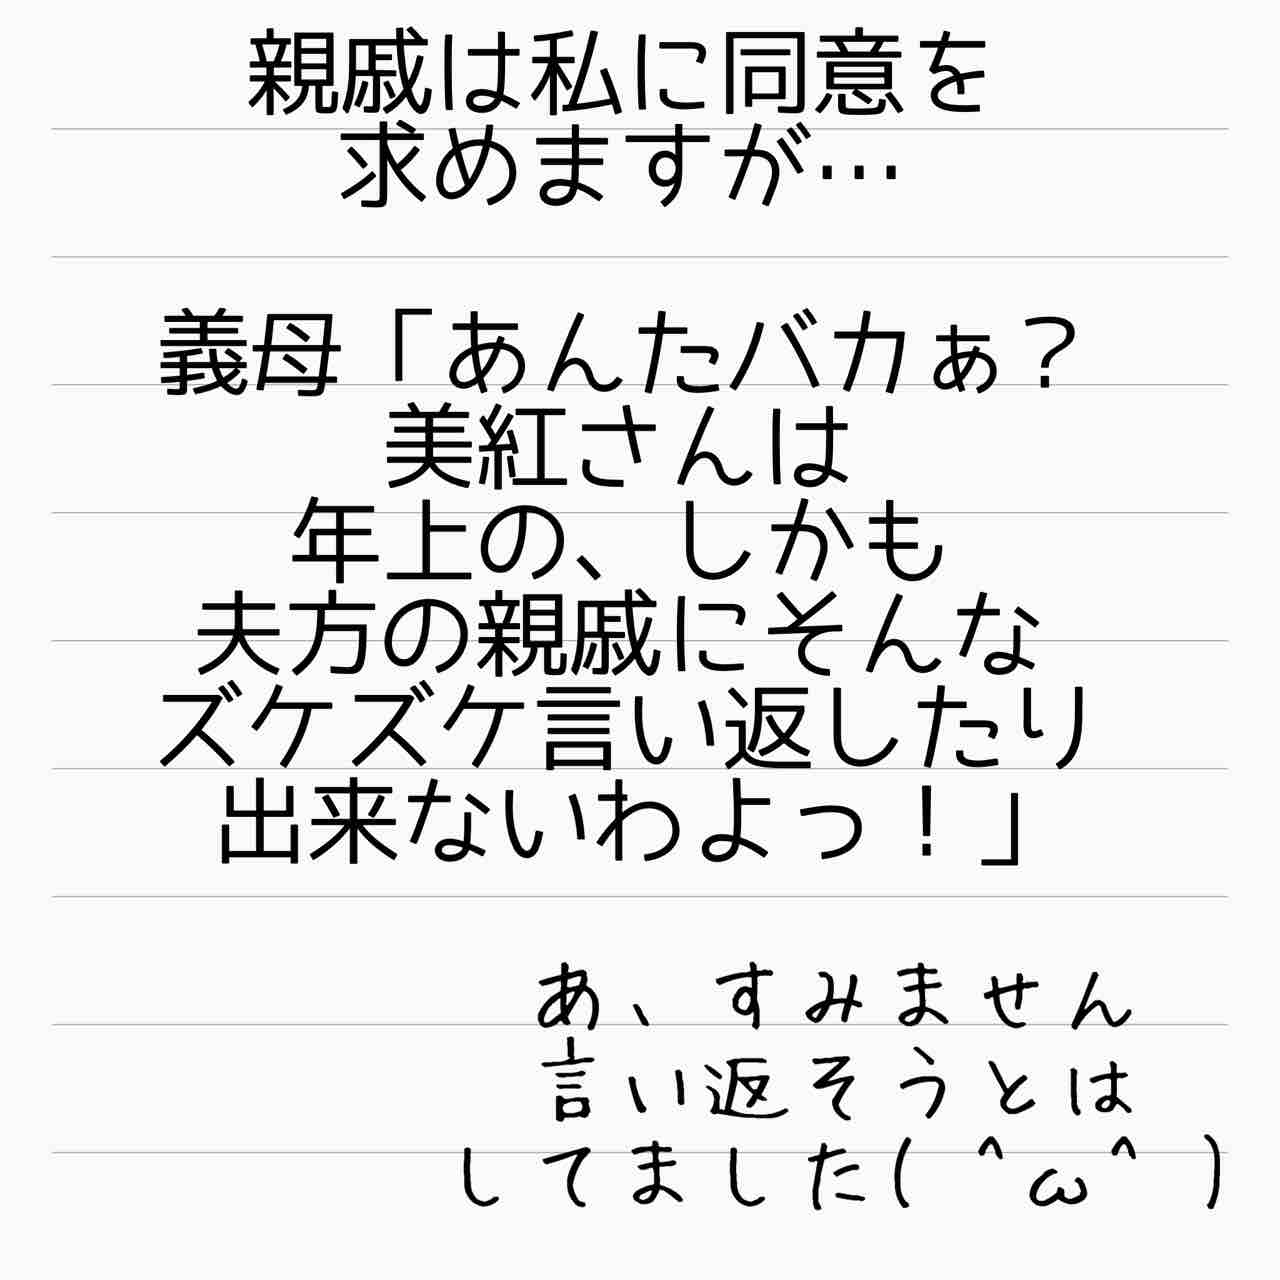 親戚は私に同意を
求めますが…
義母「あんたバカぁ？
美紅さんは
年上の、しかも
夫方の親戚にそんな
ズケズケ言い返したり
出来ないわよっ！」
あ、すみません
言い返そうとは
してました( ^ω^ )